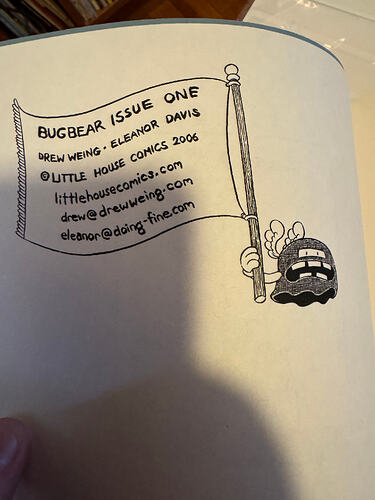 BUGBEAR ISSUE ONE
DREW WEING · ELEANOR DAVIS
© LITTLE HOUSE COMICS 2006
littlehousecomics.com
drew@drewweing.com
eleanor@doing-fine.com